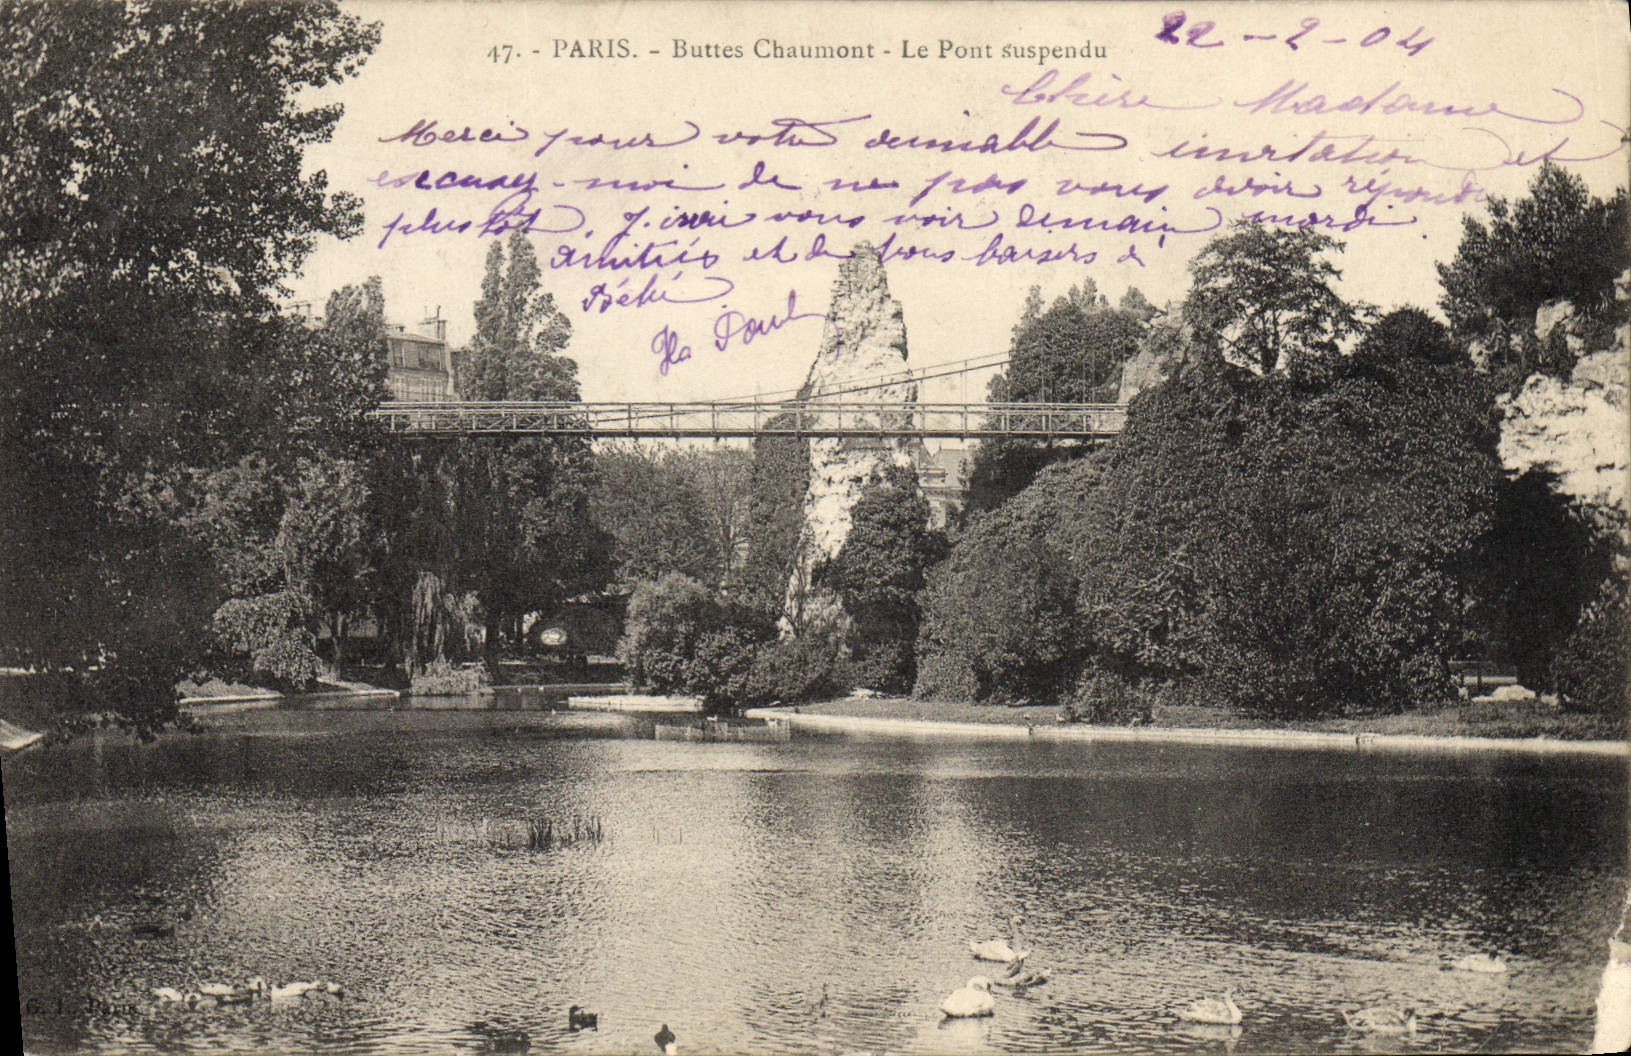 47. - PARIS. - Buttes Chaumont - Le Pont suspendu
22-2-04
Chère Madame
Merci pour votre aimable invitation et
excusez-moi de ne pas vous avoir répondu
plus tôt. J'irai vous voir demain mardi.
Amitiés et de gros baisers à
Bébé
Paul
G. I., Paris